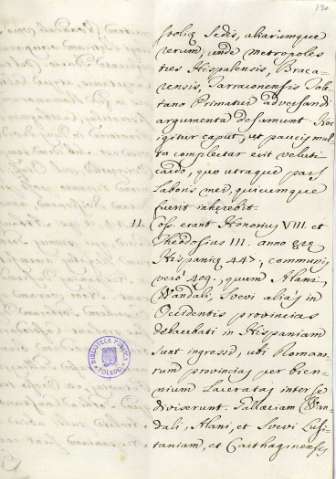 130
stolicę Sedis, aliarumque
rerum, unde metropoles
tres Hispalensis, Braca-
rensis, Tarraconensis Tole
tano Primatui adversandi
argumenta desumunt
gitur caput, ut paucis mul
ta complectar erit veluti
cardo, quo utraque pars
laboris mei, quicumque
fuerit inhærebit.
11. Coss. erant Honorius VIII et
Theodosius III. anno æræ
Hispanicę 447, communis
vero 409, quum Alani,
Wandali, Suevi alias in
Occidentis provincias
debacchati in Hispaniam
sunt ingressi, ubi Romano-
rum provincias per bien-
nium laceratas inter se
diviserunt: Gallæciam Wan
dali, Alani, et Suevi Lusi
taniam, et Carthaginensem
BIBLIOTECA PUBLICA
TOLEDO